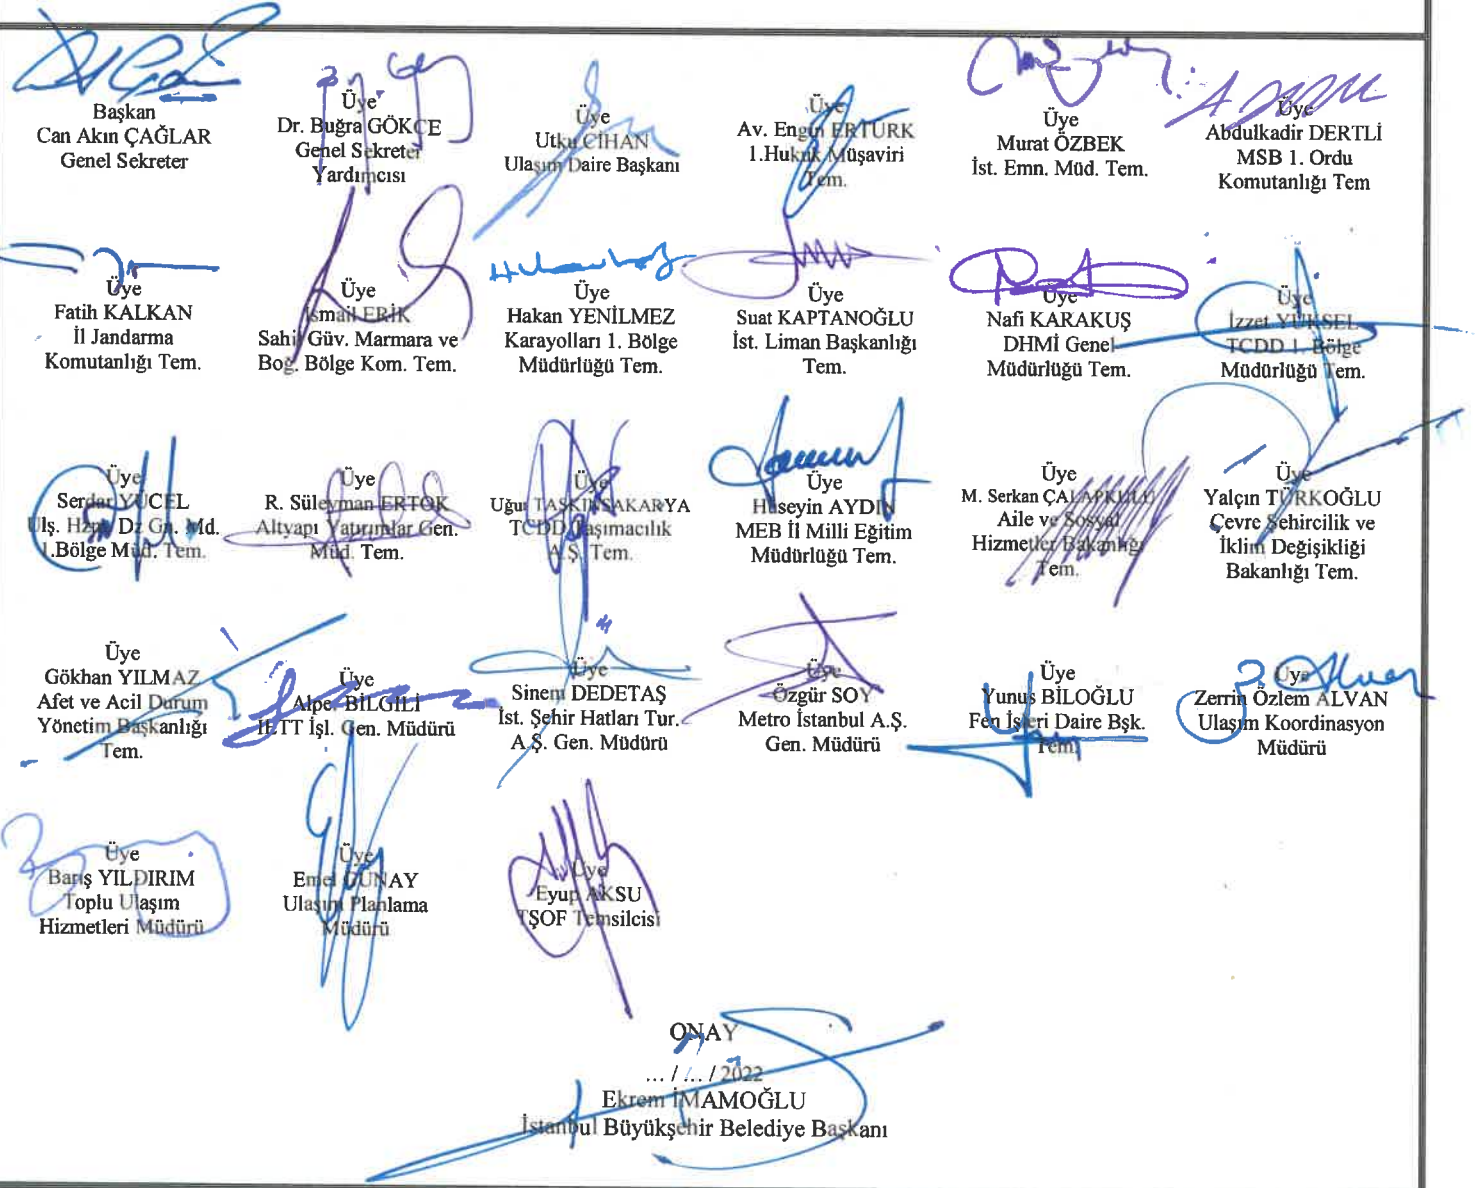 Başkan
Can Akın ÇAĞLAR
Genel Sekreter
Üye
Dr. Buğra GÖKÇE
Genel Sekreter
Yardımcısı
Üye
Utku CİHAN
Ulaşım Daire Başkanı
Üye
Av. Engin ERTÜRK
1.Hukuk Müşaviri
Tem.
Üye
Murat ÖZBEK
İst. Emn. Müd. Tem.
Üye
Abdulkadir DERTLİ
MSB 1. Ordu
Komutanlığı Tem
Üye
Fatih KALKAN
İl Jandarma
Komutanlığı Tem.
Üye
İsmail ERİK
Sahil Güv. Marmara ve
Boğ. Bölge Kom. Tem.
Üye
Hakan YENİLMEZ
Karayolları 1. Bölge
Müdürlüğü Tem.
Üye
Suat KAPTANOĞLU
İst. Liman Başkanlığı
Tem.
Üye
Nafi KARAKUŞ
DHMİ Genel
Müdürlüğü Tem.
Üye
İzzet YÜKSEL
TCDD 1. Bölge
Müdürlüğü Tem.
Üye
Serdar YÜCEL
Ulş. Hzm. Dz Gn. Md.
1.Bölge Müd. Tem.
Üye
R. Süleyman ERTOK
Altyapı Yatırımlar Gen.
Müd. Tem.
Üye
Uğur TAŞKINSAKARYA
TCDD Taşımacılık
A.Ş. Tem.
Üye
Hüseyin AYDIN
MEB İl Milli Eğitim
Müdürlüğü Tem.
Üye
M. Serkan ÇALAPKULU
Aile ve Sosyal
Hizmetler Bakanlığı
Tem.
Üye
Yalçın TÜRKOĞLU
Çevre Şehircilik ve
İklim Değişikliği
Bakanlığı Tem.
Üye
Gökhan YILMAZ
Afet ve Acil Durum
Yönetim Başkanlığı
Tem.
Üye
Alper BİLGİLİ
İETT İşl. Gen. Müdürü
Üye
Sinem DEDETAŞ
İst. Şehir Hatları Tur.
A.Ş. Gen. Müdürü
Üye
Özgür SOY
Metro İstanbul A.Ş.
Gen. Müdürü
Üye
Yunus BİLOĞLU
Fen İşleri Daire Bşk.
Tem.
Üye
Zerrin Özlem ALVAN
Ulaşım Koordinasyon
Müdürü
Üye
Barış YILDIRIM
Toplu Ulaşım
Hizmetleri Müdürü
Üye
Emel GÜNAY
Ulaşım Planlama
Müdürü
Üye
Eyup AKSU
TŞOF Temsilcisi
ONAY
... / ... / 2022
Ekrem İMAMOĞLU
İstanbul Büyükşehir Belediye Başkanı